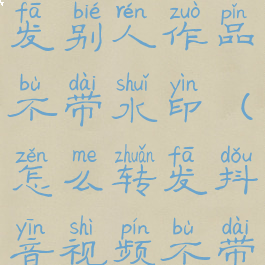 fā bié rén zuò pǐn
发别人作品
bù dài shuǐ yìn
不带水印（
zěn me zhuǎn fā dǒu
怎么转发抖
yīn shì pín bù dài
音视频不带